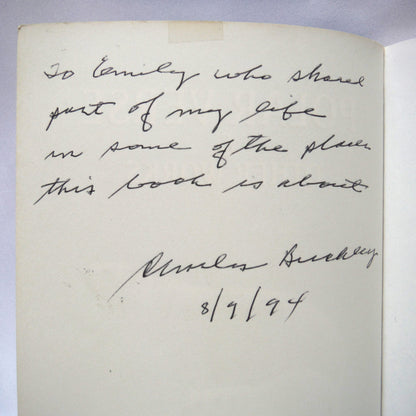 To Emily who shared
part of my life
in some of the places
this book is about
Charles Buckley
8/9/94